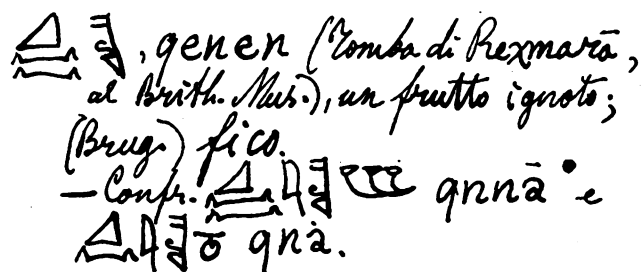 , qenen (Tomba di Rexmarā,
al Brith. Mus.), un frutto ignoto;
(Brug.) fico.
— Confr. qnnā • e
qnȧ.